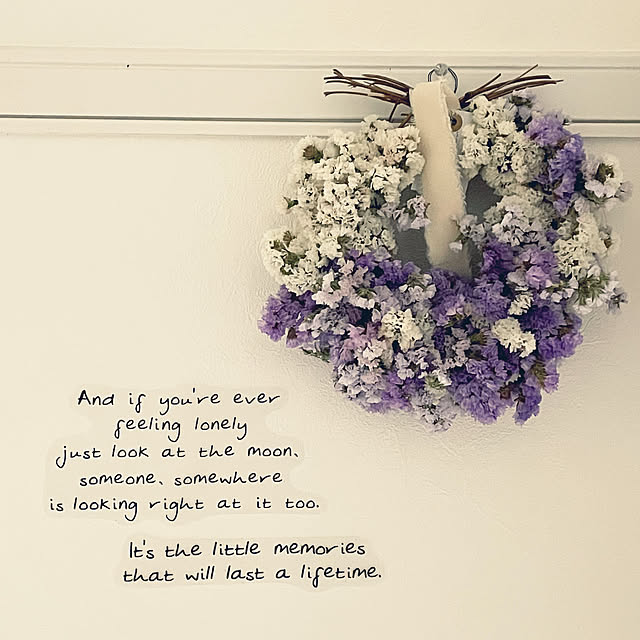 And if you're ever
feeling lonely
just look at the moon,
someone, somewhere
is looking right at it too.
It's the little memories
that will last a lifetime.